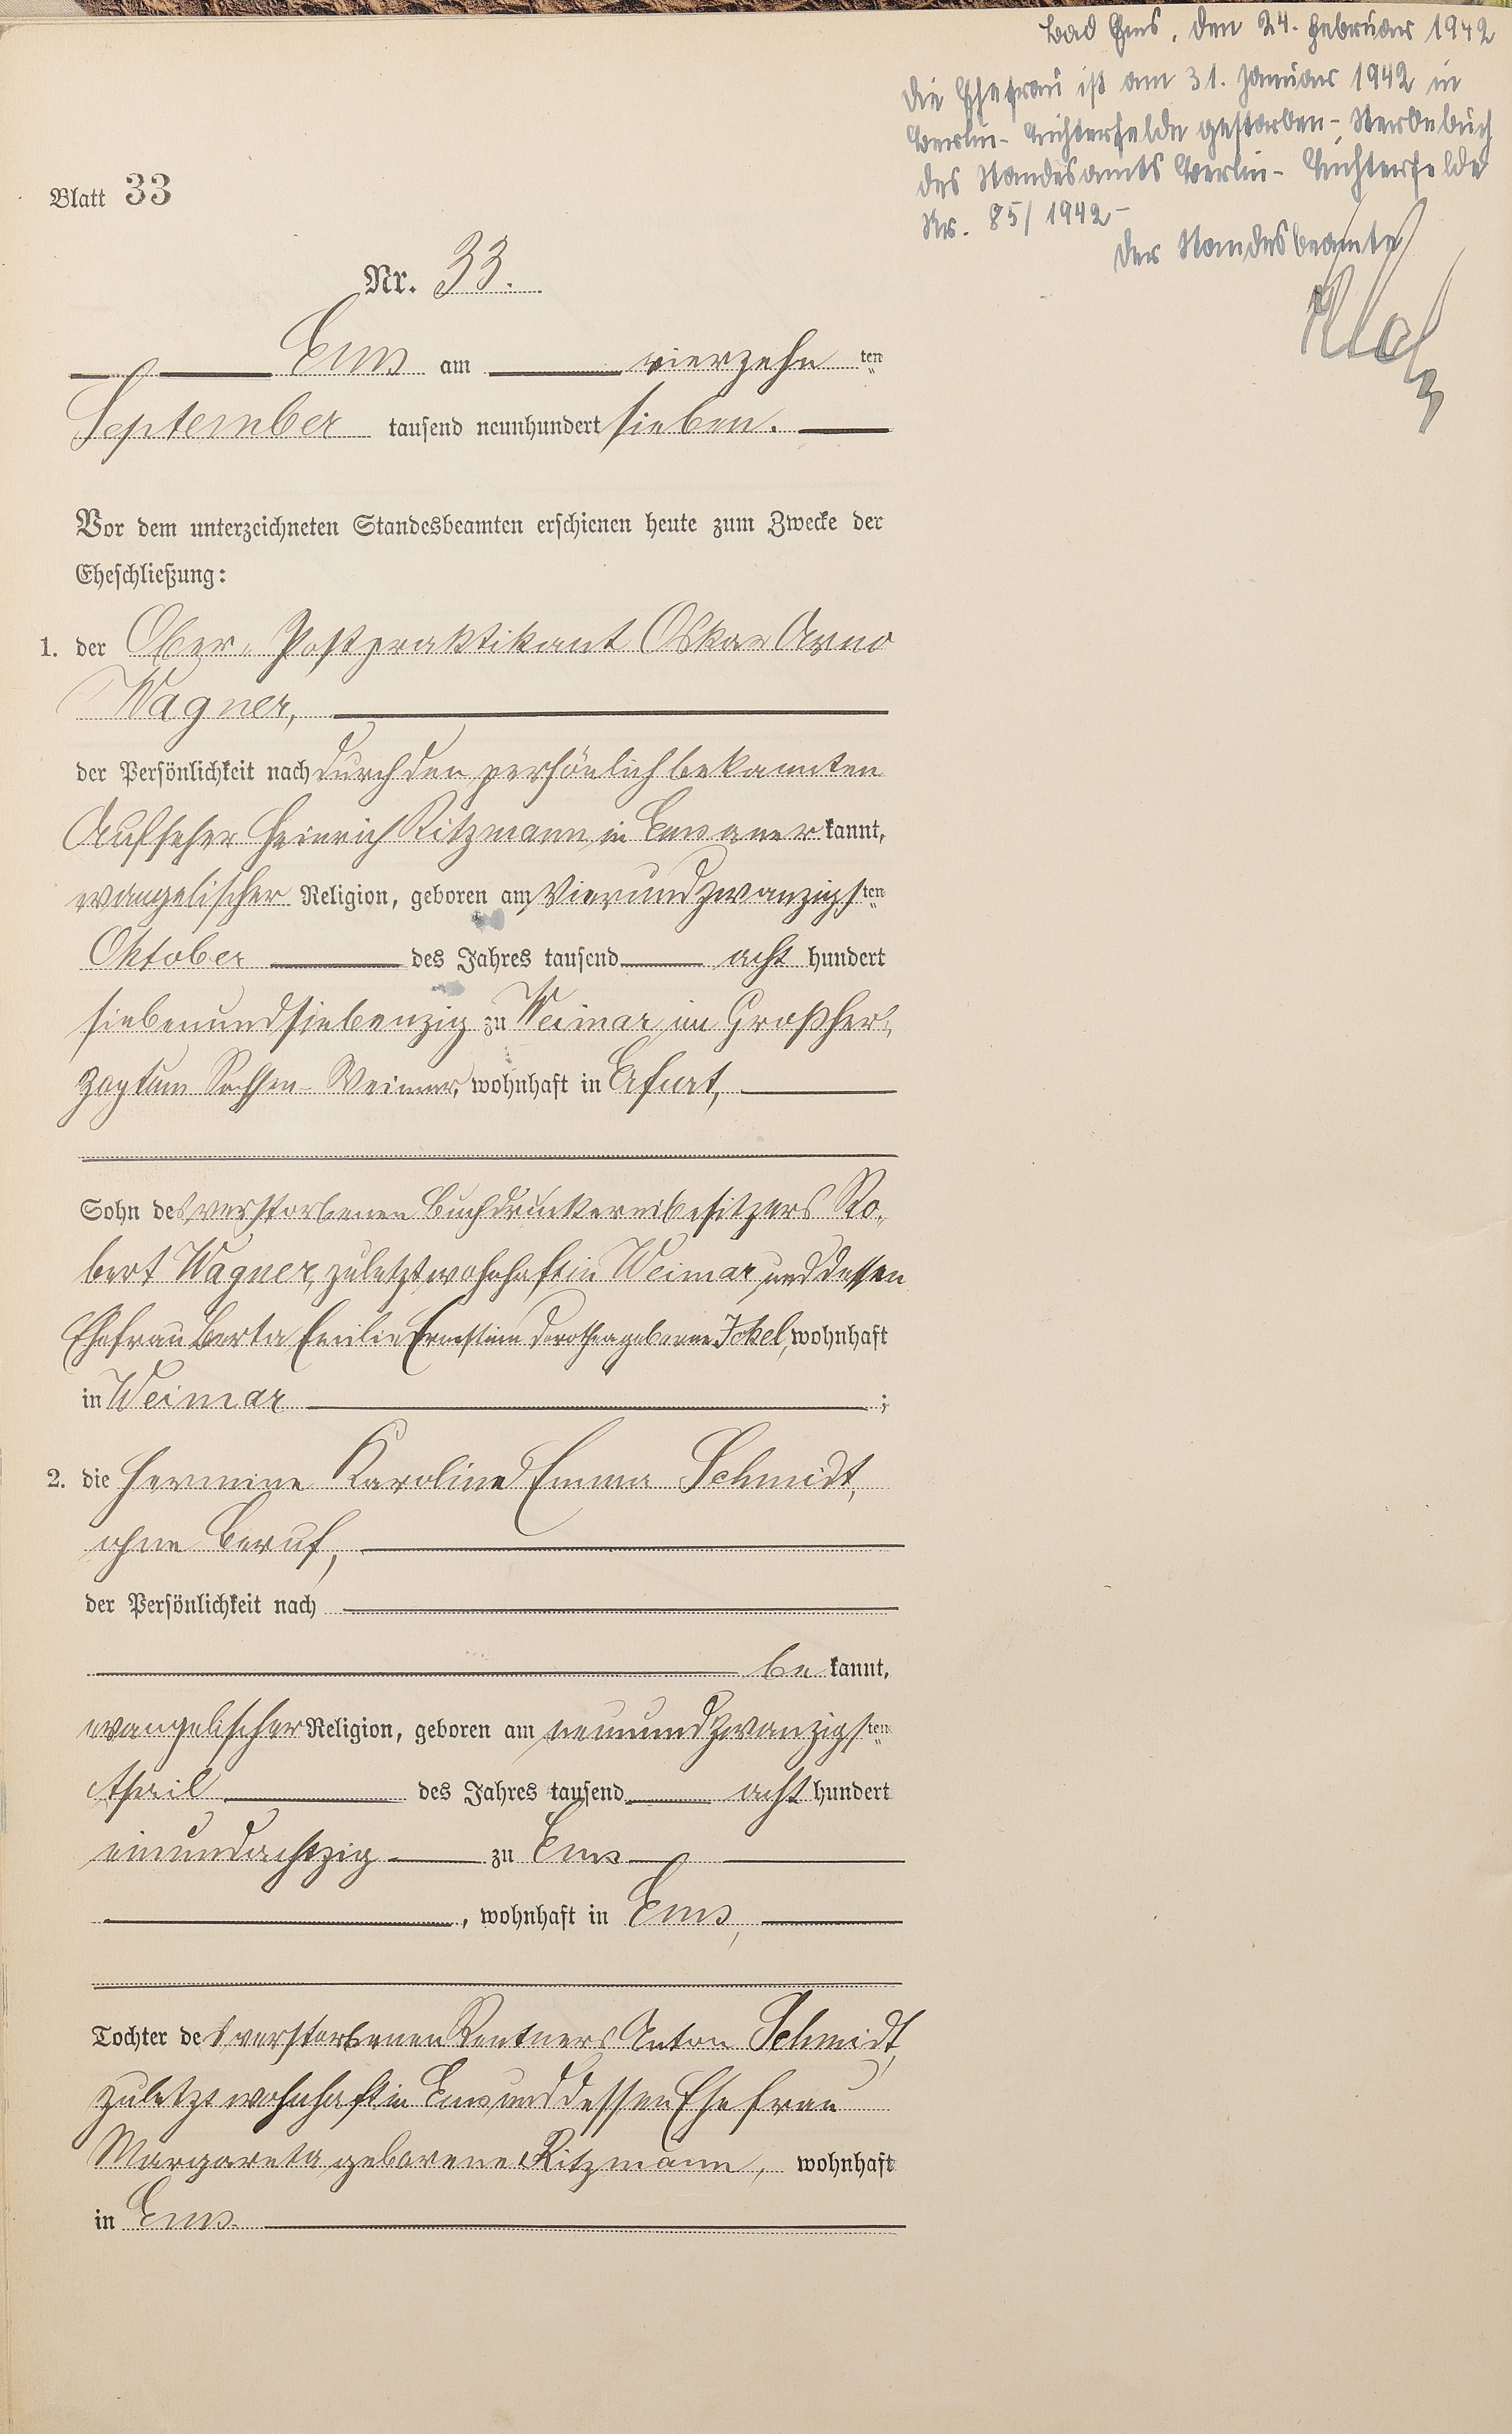 Bad Ems, den 24. Februar 1942
Die Ehefrau ist am 31. Januar 1942 in
Berlin-Lichterfelde gestorben - Sterbebuch
des Standesamts Berlin-Lichterfelde
Nr. 85/1942 -
Der Standesbeamte
Blatt 33
Nr. 33.
Ems am vierzehn ten
September tausend neunhundert sieben.
Vor dem unterzeichneten Standesbeamten erschienen heute zum Zwecke der
Eheschließung:
1. der Ober-Postpraktikant Oskar Arno
Wagner,
der Persönlichkeit nach durch den persönlich bekannten
Aufseher Heinrich Ritzmann in Ems aner kannt,
evangelischer Religion, geboren am vierundzwanzigsten
Oktober des Jahres tausend acht hundert
siebenundsiebenzig zu Weimar im Großher-
zogtum Sachsen-Weimar, wohnhaft in Erfurt,
Sohn des verstorbenen Buchdruckereibesitzers Ro-
bert Wagner, zuletzt wohnhaft in Weimar und dessen
Ehefrau Berta Emilie Ernestine Dorothea geborene Ickel, wohnhaft
in Weimar ;
2. die Hermine Karoline Emma Schmidt,
ohne Beruf,
der Persönlichkeit nach
be kannt,
evangelischer Religion, geboren am neunundzwanzigsten
April des Jahres tausend acht hundert
einundachtzig zu Ems
, wohnhaft in Ems,
Tochter des verstorbenen Rentners Anton Schmidt,
zuletzt wohnhaft in Ems und dessen Ehefrau
Margareta geborene Ritzmann, wohnhaft
in Ems.